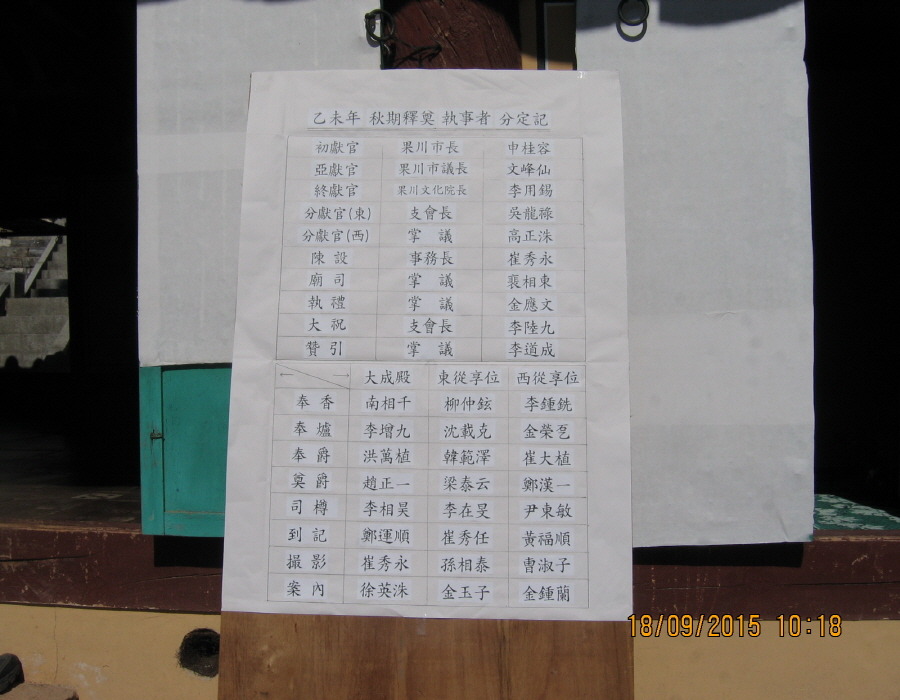 乙未年 秋期釋奠 執事者 分定記
初獻官 果川市長 申桂容
亞獻官 果川市議長 文峰仙
終獻官 果川文化院長 李用錫
分獻官(東) 支會長 吳龍祿
分獻官(西) 掌 議 高正洙
陳 設 事務長 崔秀永
廟 司 掌 議 裵相東
執 禮 掌 議 金應文
大 祝 支會長 李陸九
贊 引 掌 議 李道成
← → 大成殿 東從享位 西從享位
奉 香 南相千 柳仲鉉 李鍾銑
奉 爐 李增九 沈載克 金榮
奉 爵 洪萬植 韓範澤 崔大植
奠 爵 趙正一 梁泰云 鄭漢一
司 樽 李相昊 李在旻 尹東敏
到 記 鄭運順 崔秀任 黃福順
撮 影 崔秀永 孫相泰 曺淑子
案 內 徐英洙 金玉子 金鍾蘭
18/09/2015 10:18